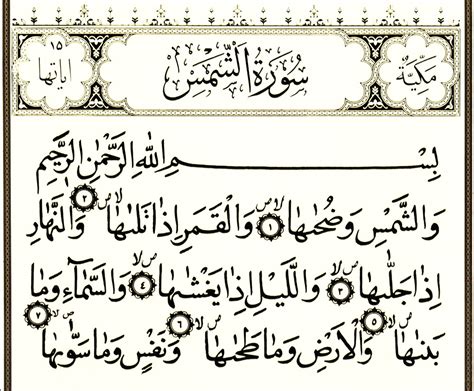 مكية سورة الشمس ١٥ اياتها
بِسْمِ اللهِ الرَّحْمٰنِ الرَّحِيْمِ
وَالشَّمْسِ وَضُحٰىهَا ١ وَالْقَمَرِ اِذَا تَلٰىهَا ٢ وَالنَّهَارِ
اِذَا جَلّٰىهَا ٣ وَاللَّيْلِ اِذَا يَغْشٰىهَا ٤ وَالسَّمَآءِ وَمَا
بَنٰىهَا ٥ وَالْاَرْضِ وَمَا طَحٰىهَا ٦ وَنَفْسٍ وَمَا سَوّٰىهَا ٧